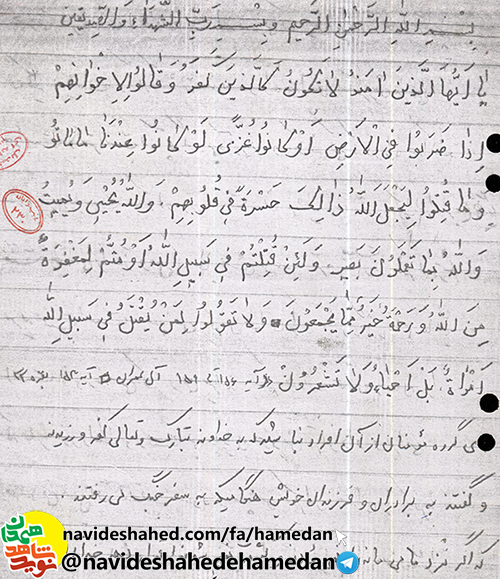 بِسْمِ اللّٰهِ الرَّحْمٰنِ الرَّحیمِ وَ بِسْمِ رَبِّ الشُّهَداءِ وَالصِّدیقین
یٰا اَیُّهَا الَّذینَ اٰمَنُوا لاٰتَکُونُوا کَالَّذینَ کَفَرُوا وَقٰالُوا لِاِخْوٰانِهِمْ
اِذٰا ضَرَبُوا فِی الْاَرْضِ اَوْکٰانُوا غُزًّی لَوْ کٰانُوا عِنْدَنٰا مٰامٰاتُو
وَمٰا قُتِلُوا لِیَجْعَلَ اللّٰهُ ذٰالِکَ حَسْرَةً فی قُلُوبِهِمْ وَاللّٰهُ یُحْیی وَیُمیتُ
وَاللّٰهُ بِمٰا تَعْمَلُونَ بَصیر وَلَئِنْ قُتِلْتُمْ فی سَبیلِ اللّٰهِ اَوْ مُتُّمْ لَمَغْفِرَةٌ
مِنَ اللّٰهِ وَ رَحْمَةٌ خَیْرٌ مِمّٰا یَجْمَعُونَ وَلاٰ تَقُولُوا لِمَنْ یُقْتَلُ فی سَبیلِ اللّٰهِ
اَمْوٰاةٌ بَلْ اَحْیٰاءٌ وَلاٰ تَشْعُرُونْ آیه ۱۵۶ تا ۱۵۷ آل عمران آیه ۱۵۴ بقره
ی گروه مؤمنان از آن افراد نباشید که به خداوند تبارک و تعالی کفر ورزیدند
و گفتند به برادران و فرزندان خویش هنگامیکه به سفر جنگ می رفتند .
که اگر نزد ما می ماندند
navideshahed.com/fa/hamedan
نوید شاهد همدان
@navideshahedehamedan